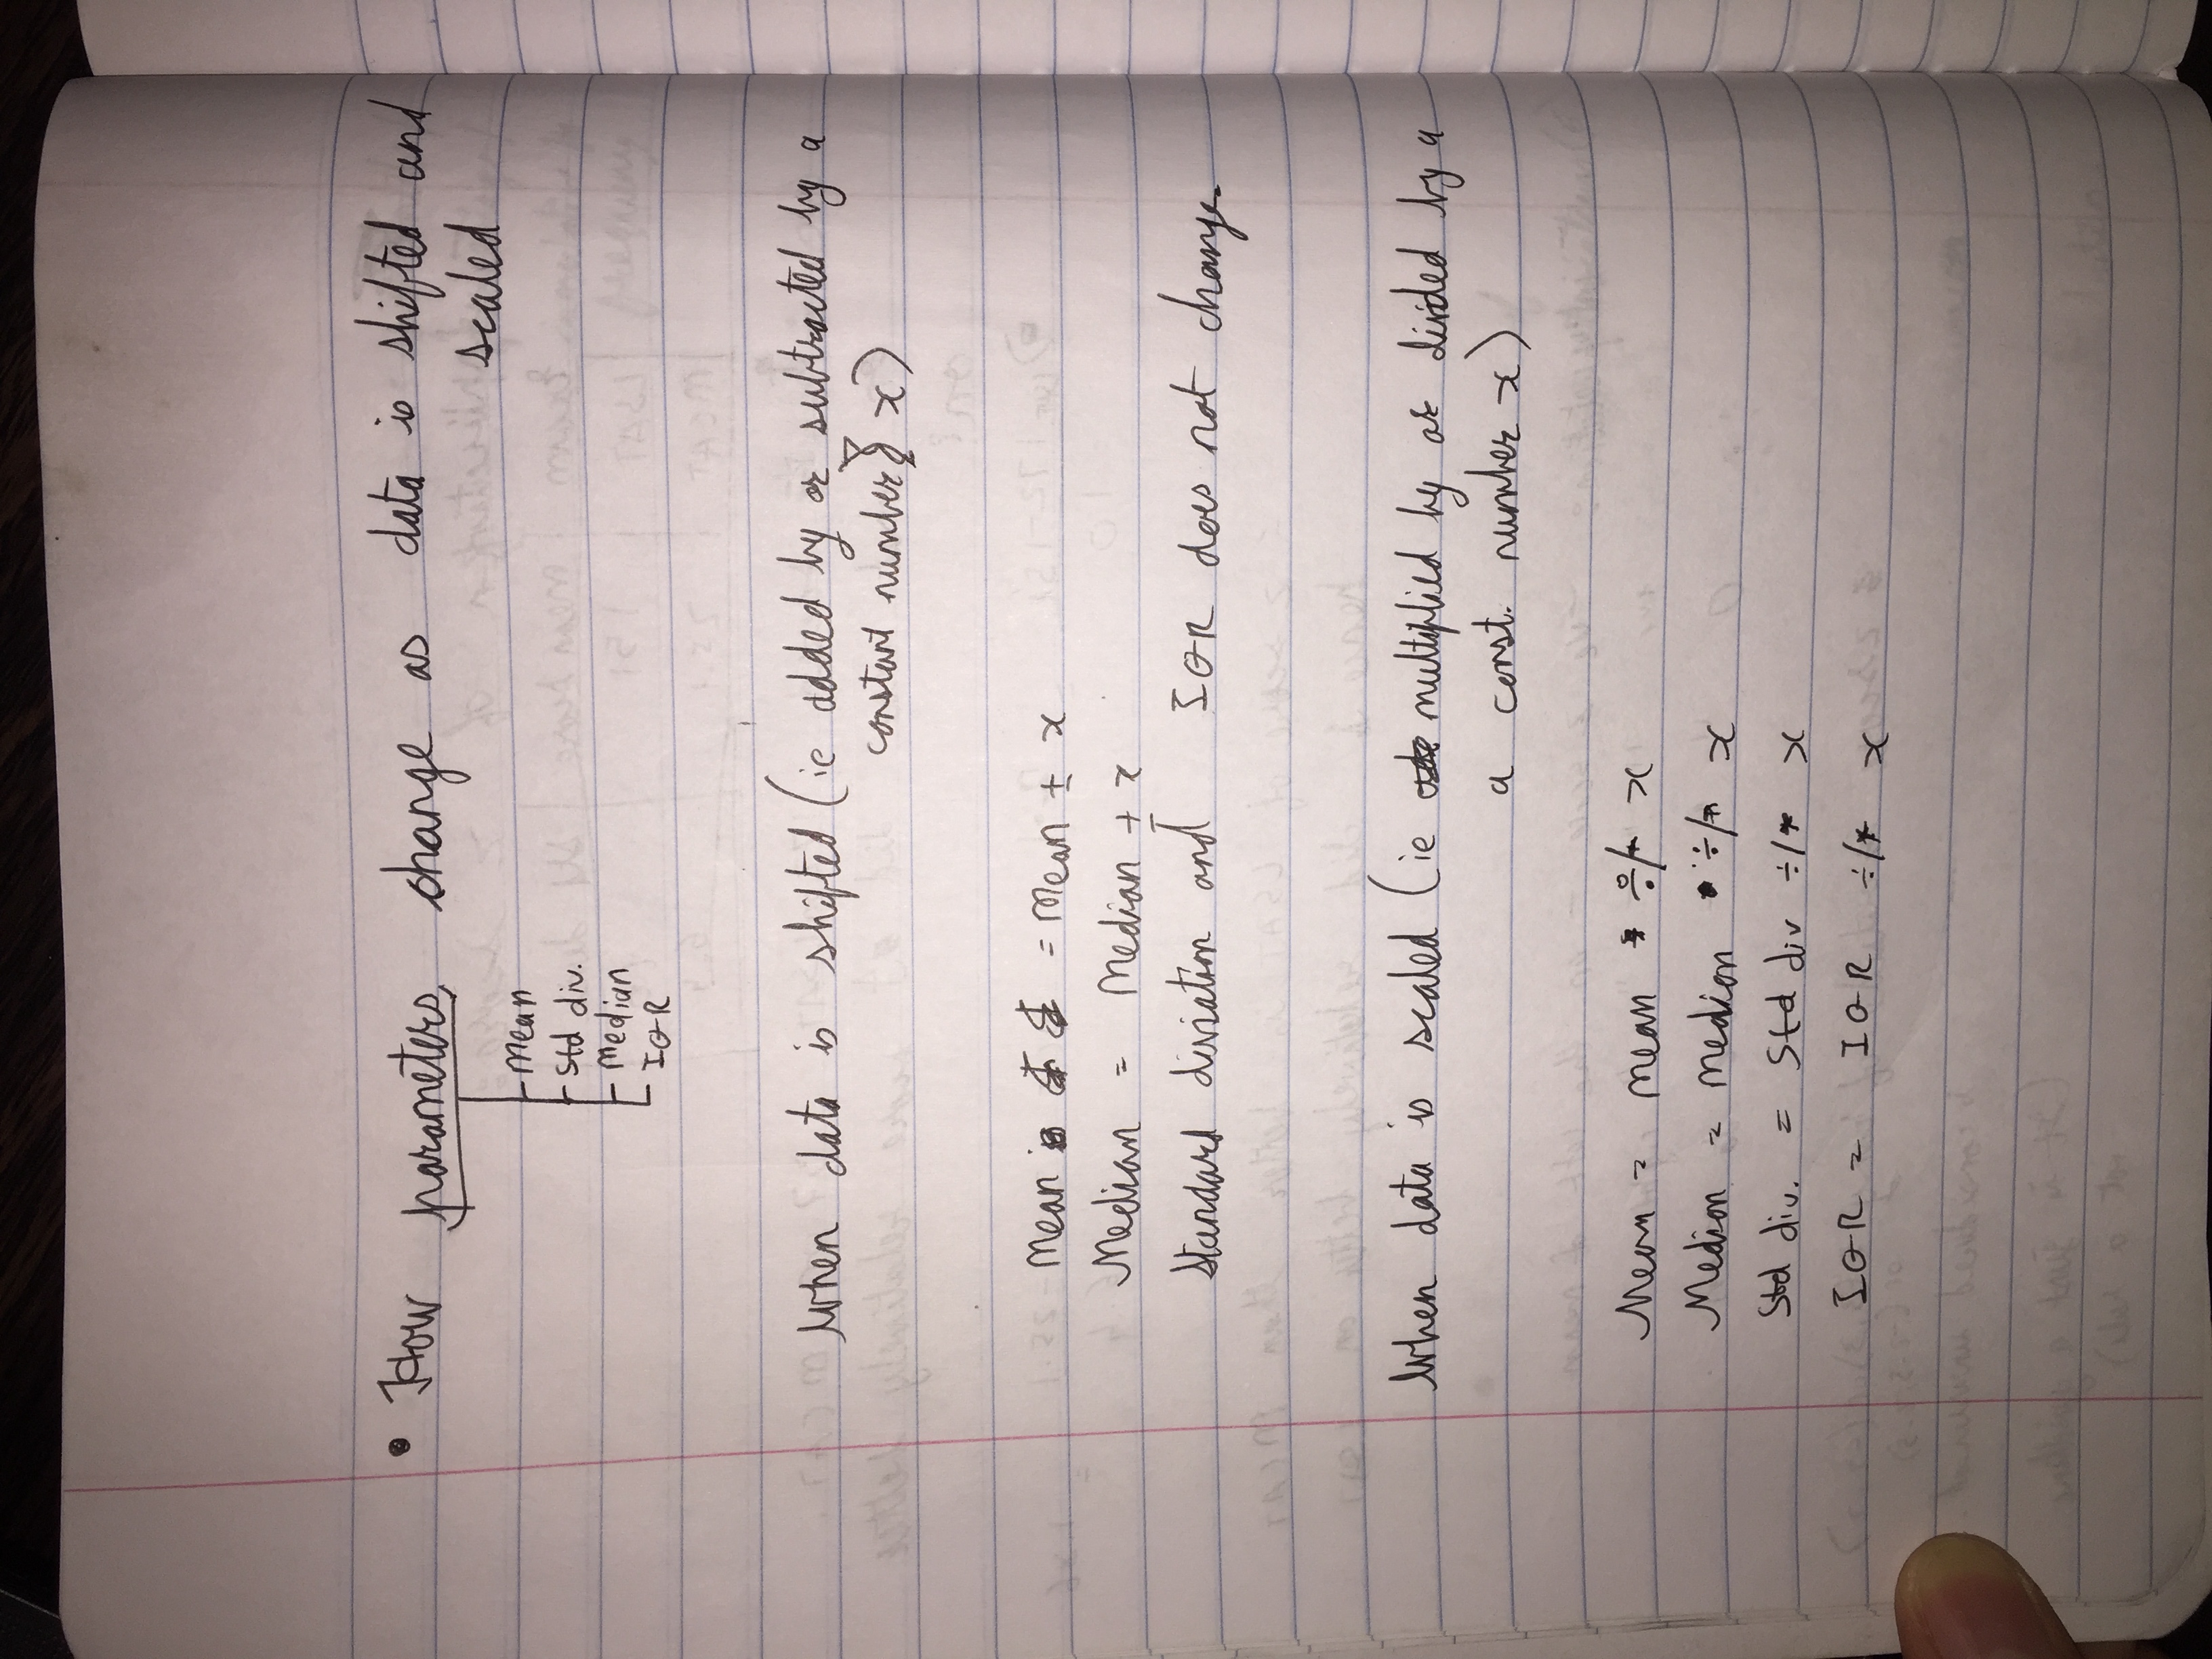 • How parameters change as data is shifted and
scaled
- Mean
- Std div.
- Median
- IQR
When data is shifted (ie added by or subtracted by a
constant number x)
Mean = Mean ± x
Median = Median ± x
Standard diviation and IQR does not change.
When data is scaled (ie multiplied by or divided by a
a const. number x)
Mean = mean ÷/* x
Median = median ÷/* x
Std div. = Std div ÷/* x
IQR = IQR ÷/* x